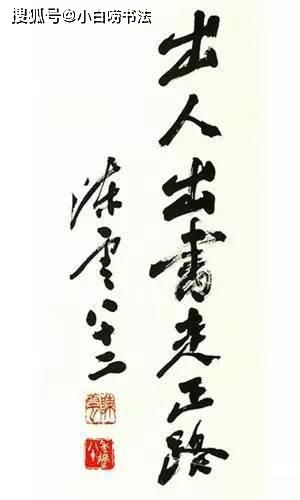 搜狐号@小白唠书法
出人出書走正路
陈雲八十二